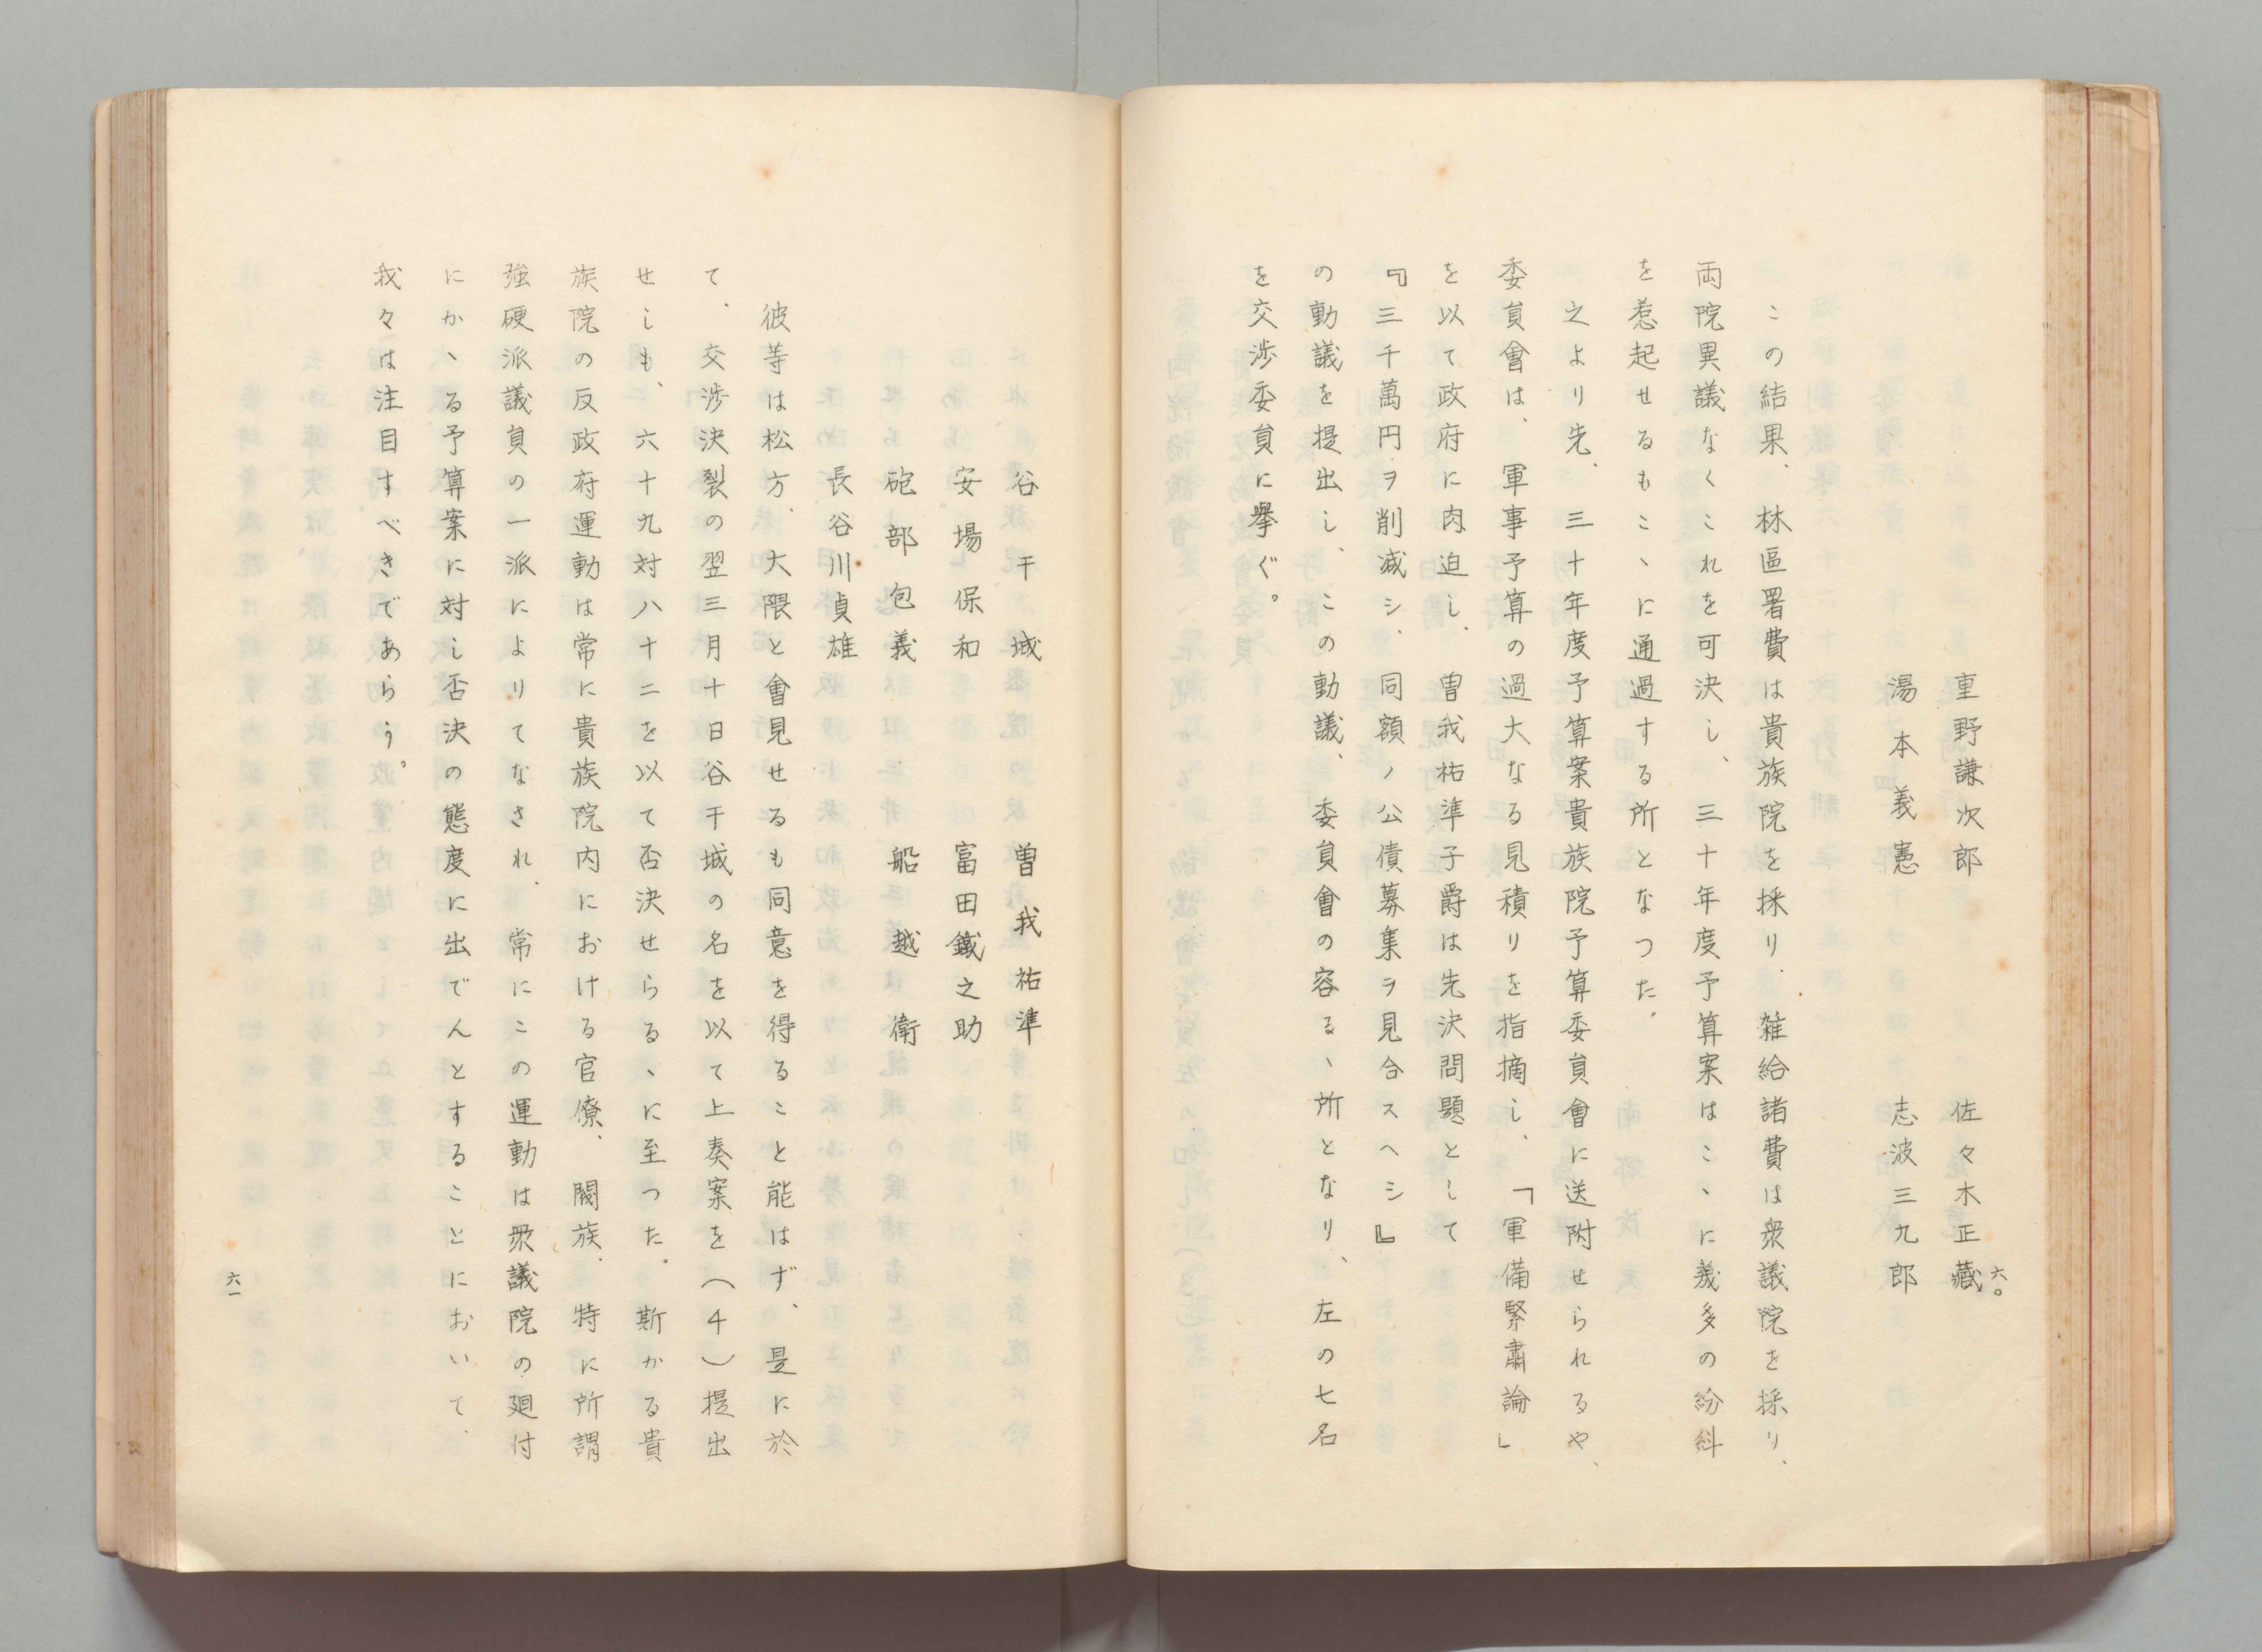 重野謙次郎　佐々木正藏
湯本義憲　志波三九郎
この結果、林區署費は貴族院を採り、雑給諸費は衆議院を採り、
両院異議なくこれを可決し、三十年度予算案はこゝに幾多の紛糾
を惹起せるもこゝに通過する所となつた。
之より先、三十年度予算案貴族院予算委員會に送附せられるや、
委員會は、軍事予算の過大なる見積りを指摘し、「軍備緊肅論」
を以て政府に肉迫し、曽我祐準子爵は先決問題として
『三千萬円ヲ削減シ、同額ノ公債募集ヲ見合スヘシ』
の動議を提出し、この動議、委員會の容るゝ所となり、左の七名
を交渉委員に擧ぐ。
六〇
谷干城　曽我祐準
安場保和　富田鐵之助
砲部包義　船越衛
長谷川貞雄
彼等は松方、大隈と會見せるも同意を得ること能はず、是に於
て、交渉決裂の翌三月十日谷干城の名を以て上奏案を（４）提出
せしも、六十九対八十二を以て否決せらるゝに至つた。斯かる貴
族院の反政府運動は常に貴族院内における官僚、閥族、特に所謂
強硬派議員の一派によりてなされ、常にこの運動は衆議院の廻付
にかゝる予算案に対し否決の態度に出でんとすることにおいて、
我々は注目すべきであらう。
六一